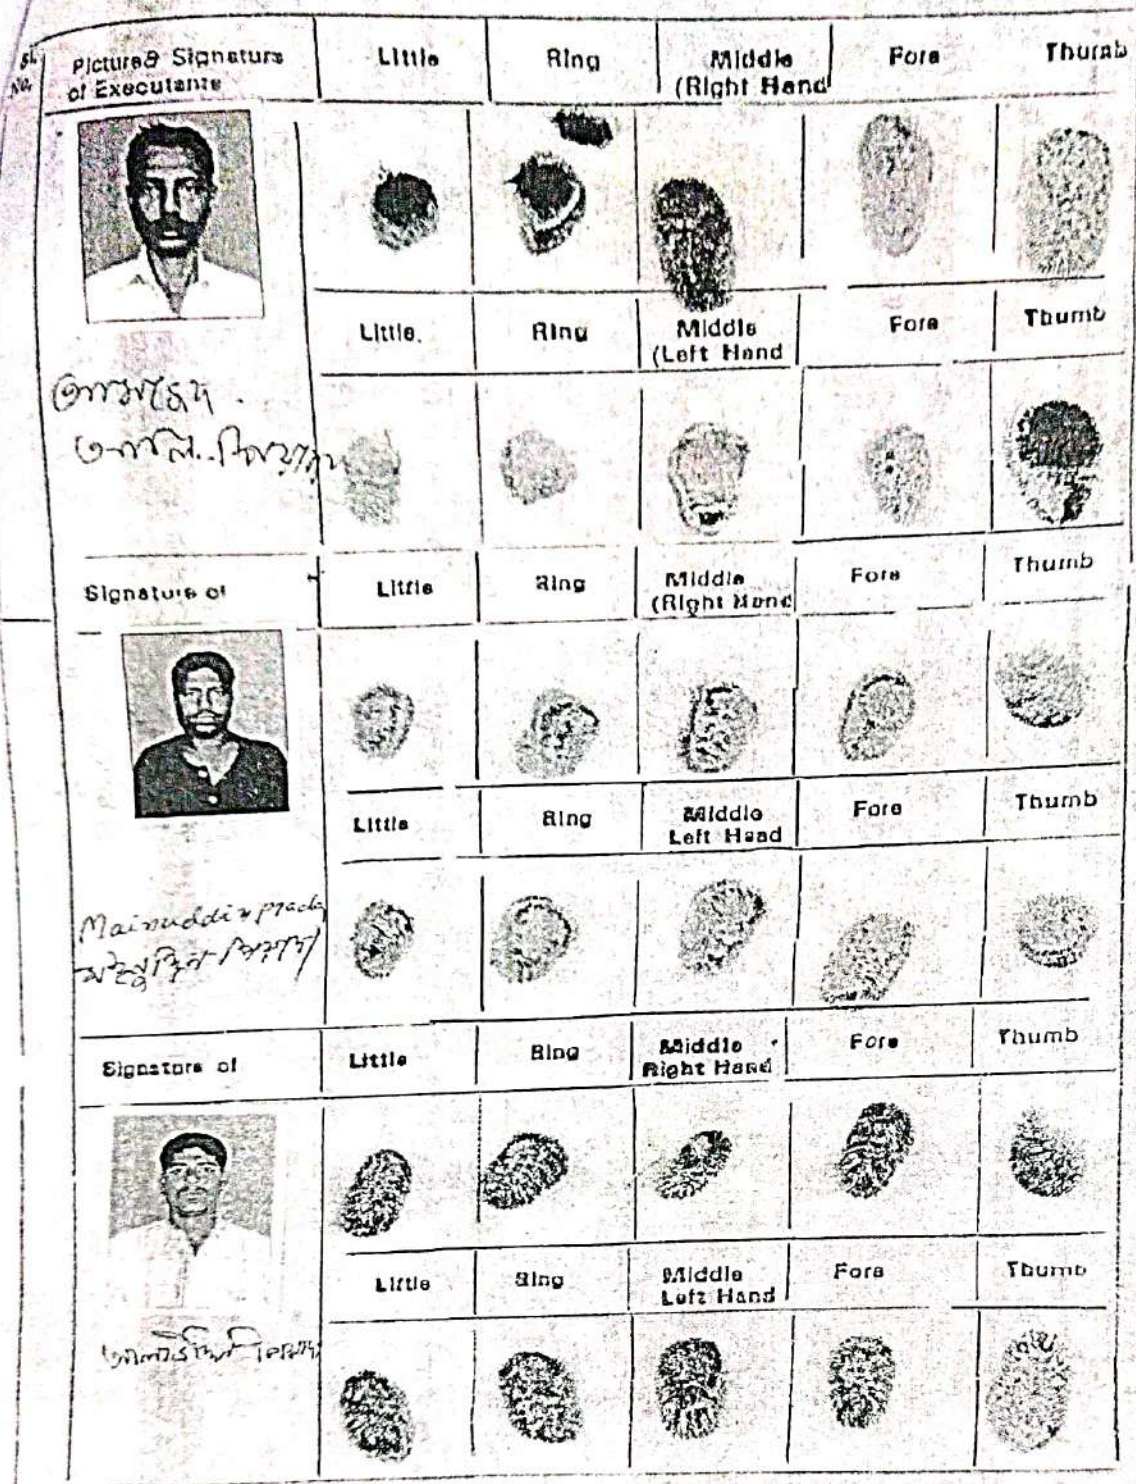 SL. No. Picture & Signature of Executants Little Ring Middle (Right Hand Fore Thumb
Little. Ring Middle (Left Hand Fore Thumb
আলি
Signature of Little Ring Middle (Right Hand Fore Thumb
Little Ring Middle Left Hand Fore Thumb
Mainuddin prada
Signature of Little Ring Middle Right Hand Fore Thumb
Little Ring Middle Left Hand Fore Thumb